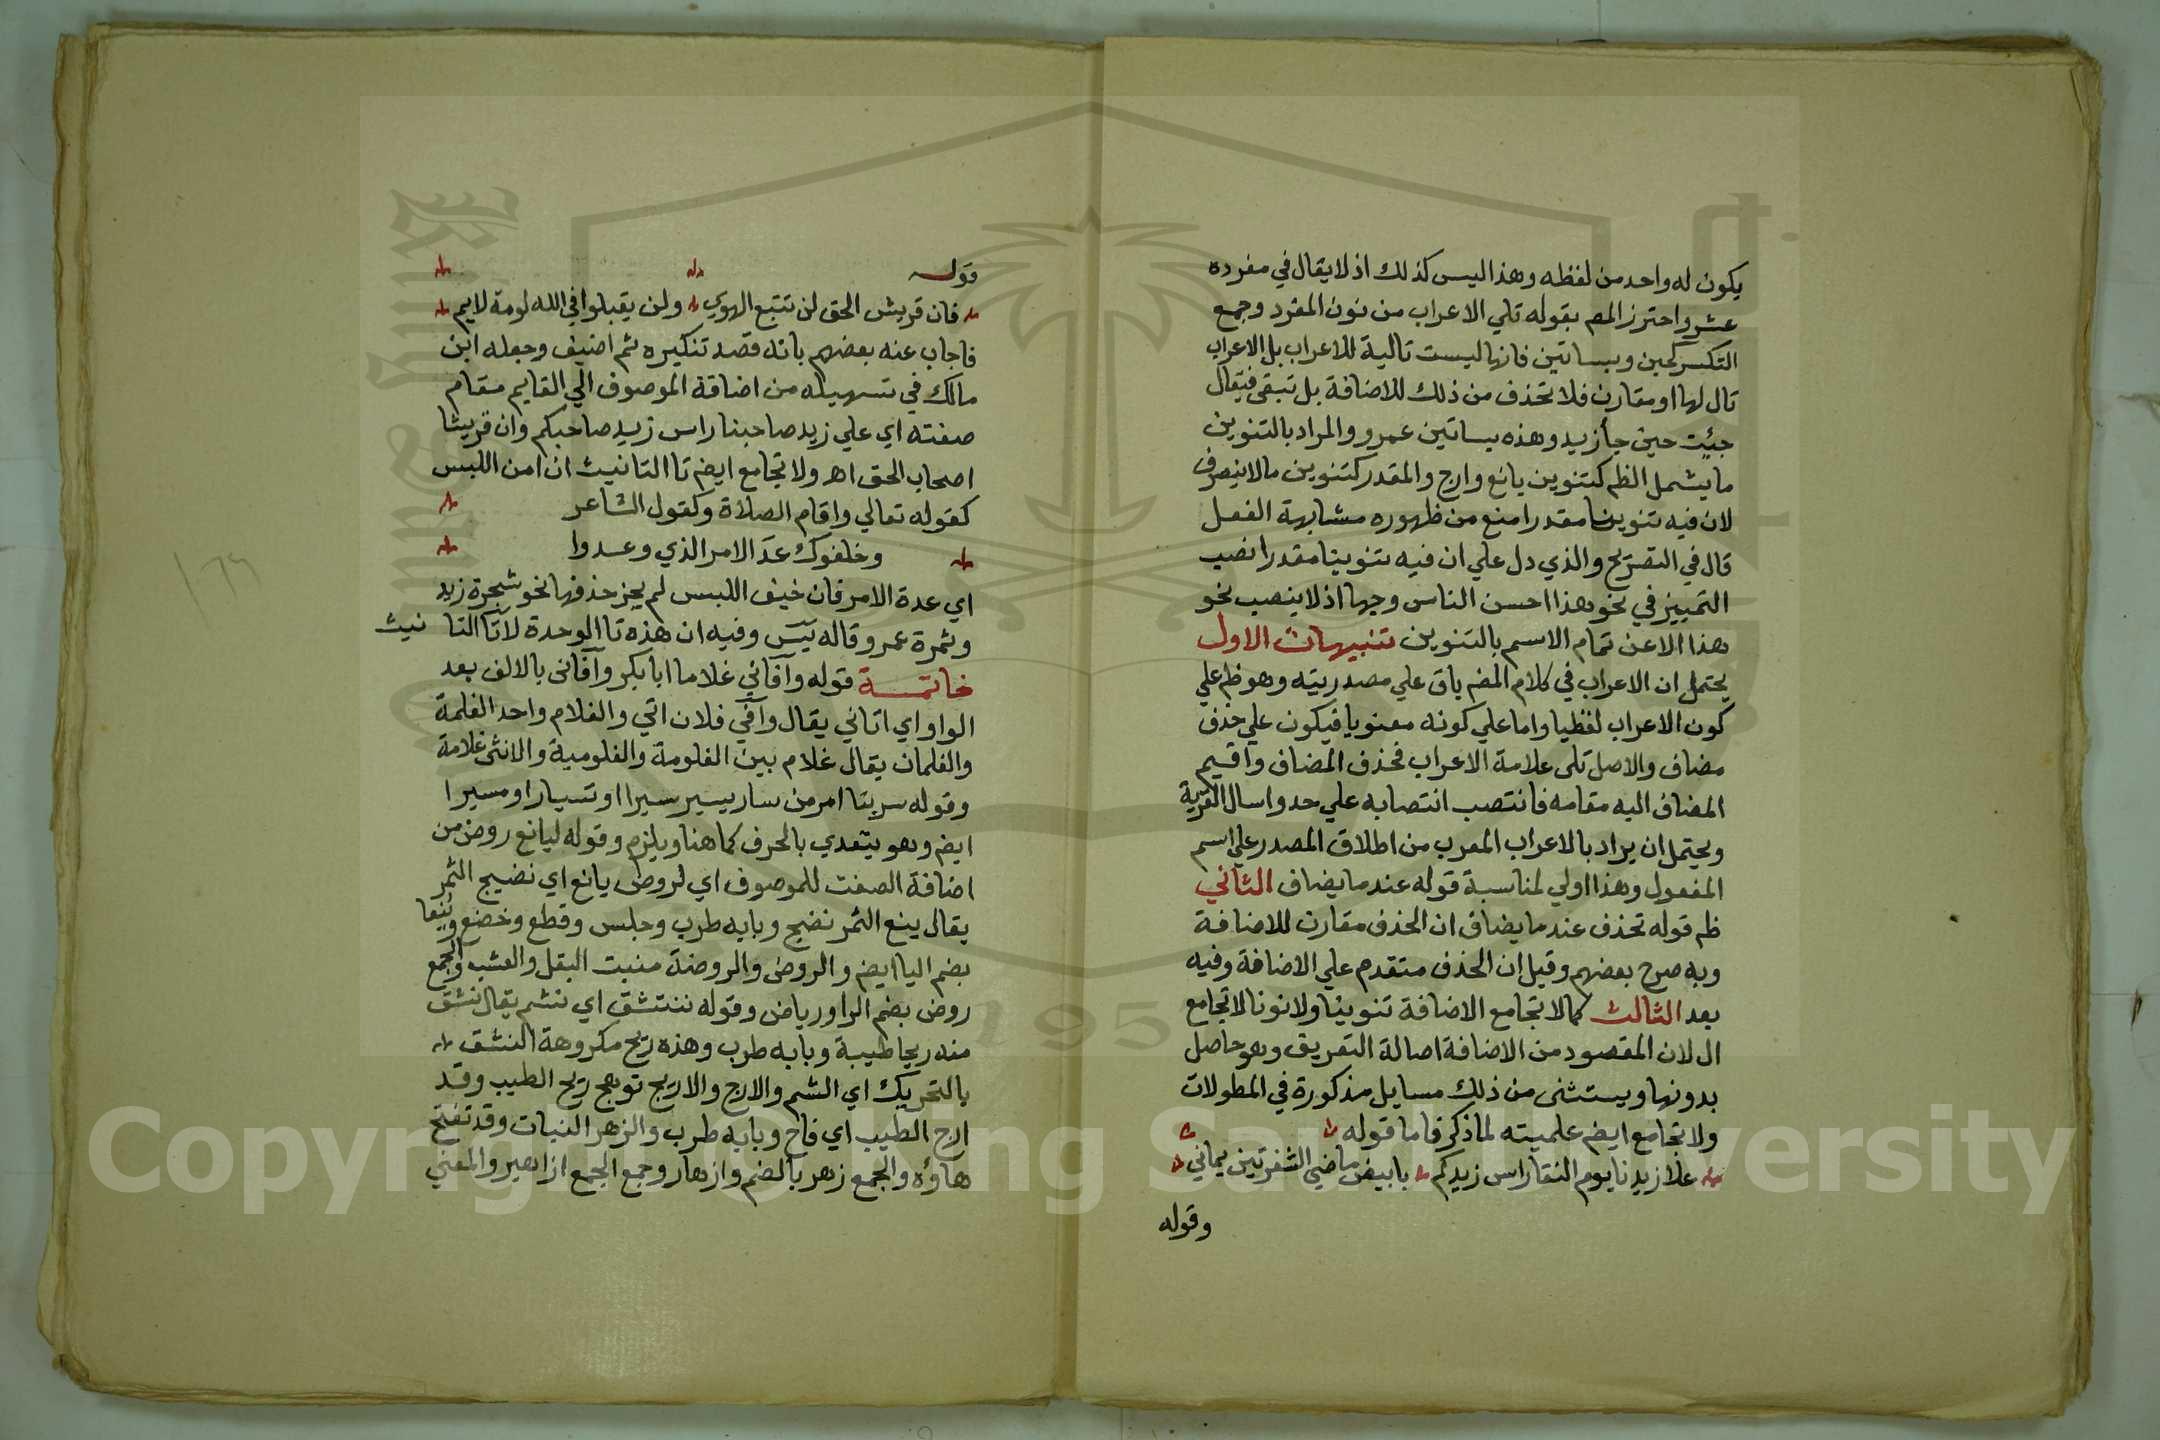 يكون له واحد من لفظه وهذا ليس كذلك اذ لا يقال في مفرده
عشر واحترز المصم بقوله تلي الاعراب من نون المفرد وجمع
التكسير كحين وبساتين فانها ليست تالية للاعراب بل الاعراب
تال لها او مقارن فلا تحذف من ذلك للاضافة بل تبقي فيقال
جيت حين جأ زيد وهذه بساتين عمرو والمراد بالتنوين
ما يشمل الظم كتنوين يانع وارج والمقدر كتنوين ما لا ينصرف
لان فيه تنوينا مقدرا منع من ظهوره مشابهة الفعل
قال في التصريح والذي دل علي ان فيه تنوينا مقدرا نصب
التمييز في نحو هذا احسن الناس وجها اذ لا ينصب نحو
هذا الا عن تمام الاسم بالتنوين تنبيهات الاول
يحتمل ان الاعراب في كلام المصم باق علي مصدريته وهو ظم علي
كون الاعراب لفظيا واما علي كونه معنويا فيكون علي حذف
مضاف والاصل تلي علامة الاعراب فحذف المضاف واقيم
المضاف اليه مقامه فانتصب انتصابه علي حد واسال القرية
ويحتمل ان يراد بالاعراب المعرب من اطلاق المصدر علي اسم
المفعول وهذا اولي لمناسبة قوله عندما يضاف الثاني
ظم قوله تحذف عندما يضاف ان الحذف مقارن للاضافة
وبه صرح بعضهم وقيل ان الحذف متقدم علي الاضافة وفيه
بعد الثالث كما لا تجامع الاضافة تنوينا ولا نونا لا تجامع
ال لان المقصود من الاضافة اصالة التعريف وهو حاصل
بدونها ويستثنى من ذلك مسايل مذكورة في المطولات
ولا تجامع ايضم علميته لما ذكر فاما قوله
علا زيدنا يوم النقا راس زيدكم بابيض ماضي الشفرتين يماني
وقوله
قوله
فان قريش الحق لن تتبع الهوي ولن يقبلوا في الله لومة لايم
فاجاب عنه بعضهم بانه قصد تنكيره ثم اضيف وجعله ابن
مالك في تسهيله من اضافة الموصوف الي القايم مقام
صفته اي علي زيد صاحبنا راس زيد صاحبكم وان قريشا
اصحاب الحق اهـ ولا تجامع ايضم تا التانيث ان امن اللبس
كقوله تعالي واقام الصلاة وكقول الشاعر
وخلفوك عدَ الامر الذي وعدوا
اي عدة الامر فان خيف اللبس لم يجز حذفها نحو شجرة زيد
وثمرة عمرو قاله يس وفيه ان هذه تا الوحدة لا تا التا نيث
خاتمة قوله وآفاني غلاما ابا بكر وآفاني بالالف بعد
الواو اي اتاني يقال وآفي فلان اتي والغلام واحد الغلمة
والغلمان يقال غلام بين الغلومة والغلومية والانثى غلامة
وقوله سر بنا امر من سار يسير سيرا او تسيارا ومسيرا
ايضم وهو يتعدي بالحرف كما هنا ويلزم وقوله ليانع روض من
اضافة الصفت للموصوف اي لروض يانع اي نضيج الثمر
يقال ينع الثمر نضج وبابه طرب وجلس وقطع وخضع وينعا
بضم اليا ايضم والروض والروضة منبت البقل والعشب والجمع
روض بضم الرا ورياض وقوله ننتشق اي نشم يقال نشق
منه ريحا طيبة وبابه طرب وهذه ريح مكروهة النشق
بالتحريك اي الشم والارج والاريج توهج ريح الطيب وقد
ارج الطيب اي فاح وبابه طرب والزهر النبات وقد تفتح
هاؤه والجمع زهر بالضم وازهار وجمع الجمع ازاهير والمعني
١٦٩
Copyright © King Saud University
1957